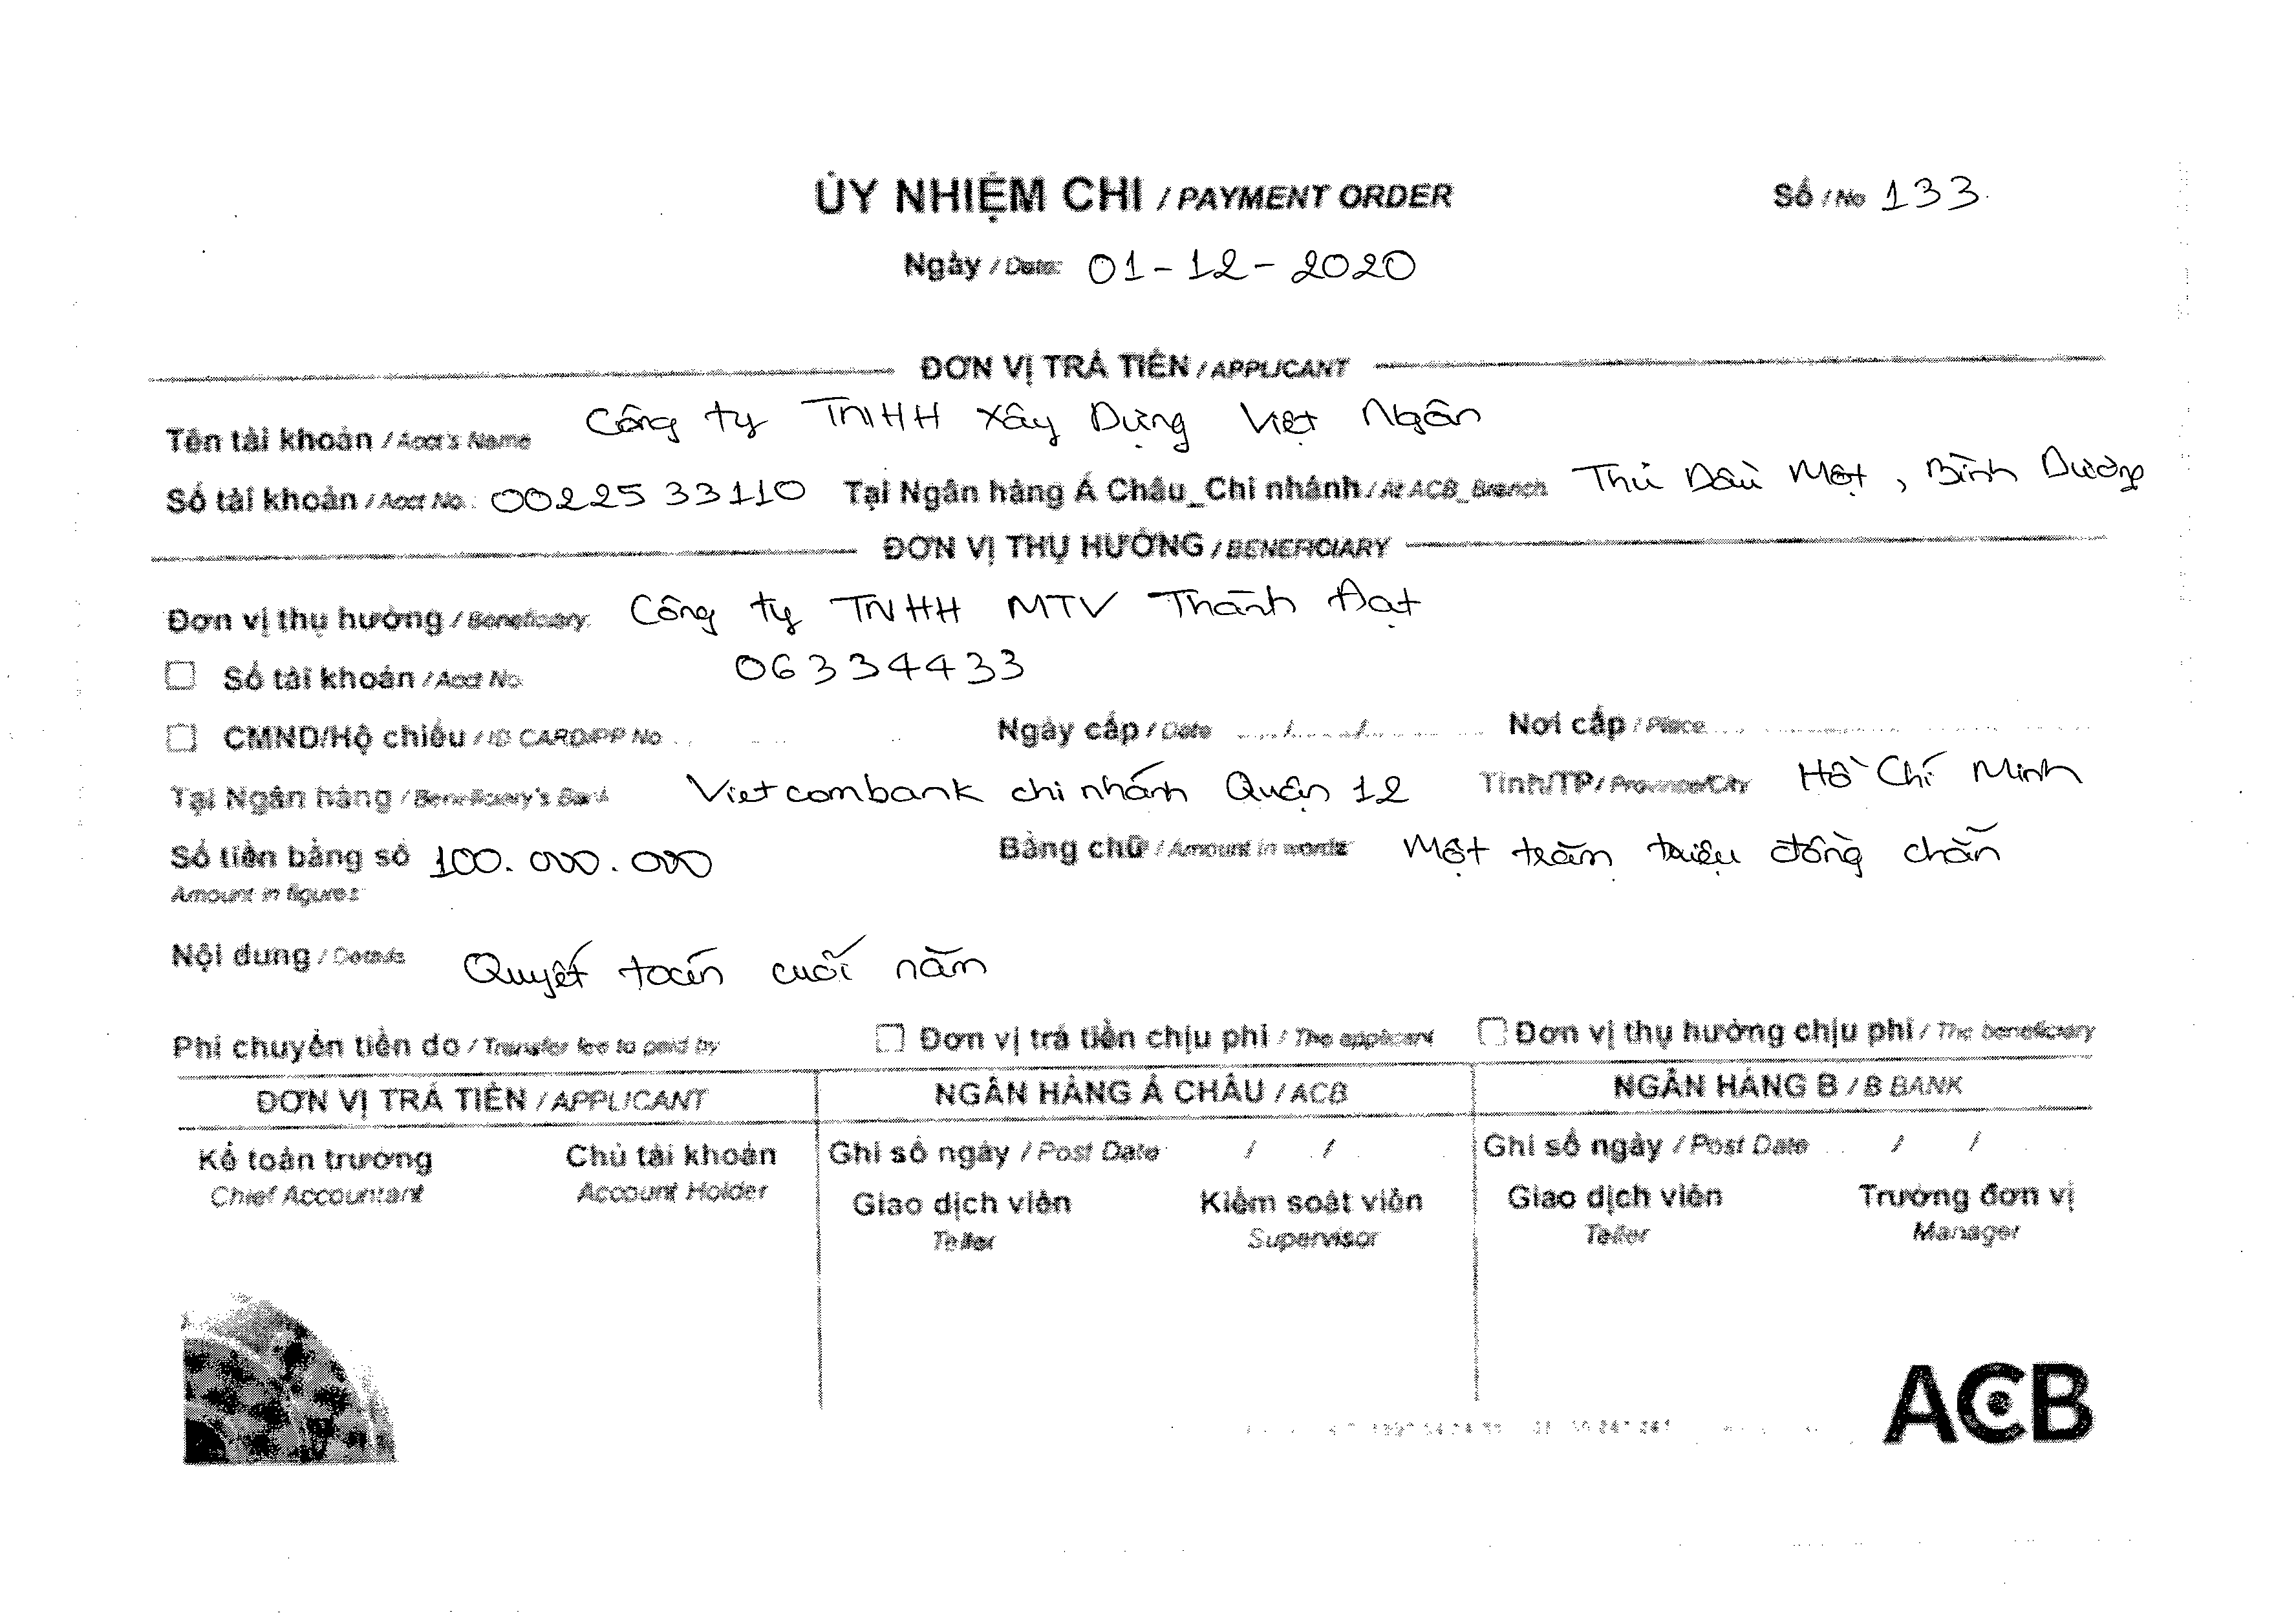 ỦY NHIỆM CHI / PAYMENT ORDER Số / No 133
Ngày / Date: 01-12-2020
ĐƠN VỊ TRẢ TIỀN / APPLICANT
Tên tài khoản / Acct's Name Công ty TNHH Xây Dựng Việt Ngân
Số tài khoản / Acct No.: 0022533110 Tại Ngân hàng Á Châu_Chi nhánh / At ACB_Branch Thủ Dầu Một, Bình Dương
ĐƠN VỊ THỤ HƯỞNG / BENEFICIARY
Đơn vị thụ hưởng / Beneficiary: Công ty TNHH MTV Thành Đạt
Số tài khoản / Acct No. 06334433
CMND/Hộ chiếu / ID CARD/PP No Ngày cấp / Date / / Nơi cấp / Place
Tại Ngân hàng / Beneficiary's Bank Vietcombank chi nhánh Quận 12 Tỉnh/TP / Province/City Hồ Chí Minh
Số tiền bằng số 100.000.000 Bằng chữ / Amount in words: Một trăm triệu đồng chẵn
Amount in figures:
Nội dung / Details Quyết toán cuối năm
Phí chuyển tiền do / Transfer fee to paid by Đơn vị trả tiền chịu phí / The applicant Đơn vị thụ hưởng chịu phí / The beneficiary
ĐƠN VỊ TRẢ TIỀN / APPLICANT NGÂN HÀNG Á CHÂU / ACB NGÂN HÀNG B / B BANK
Kế toán trưởng Chủ tài khoản Ghi sổ ngày / Post Date / / Ghi sổ ngày / Post Date / /
Chief Accountant Account Holder Giao dịch viên Kiểm soát viên Giao dịch viên Trưởng đơn vị
Teller Supervisor Teller Manager
ACB